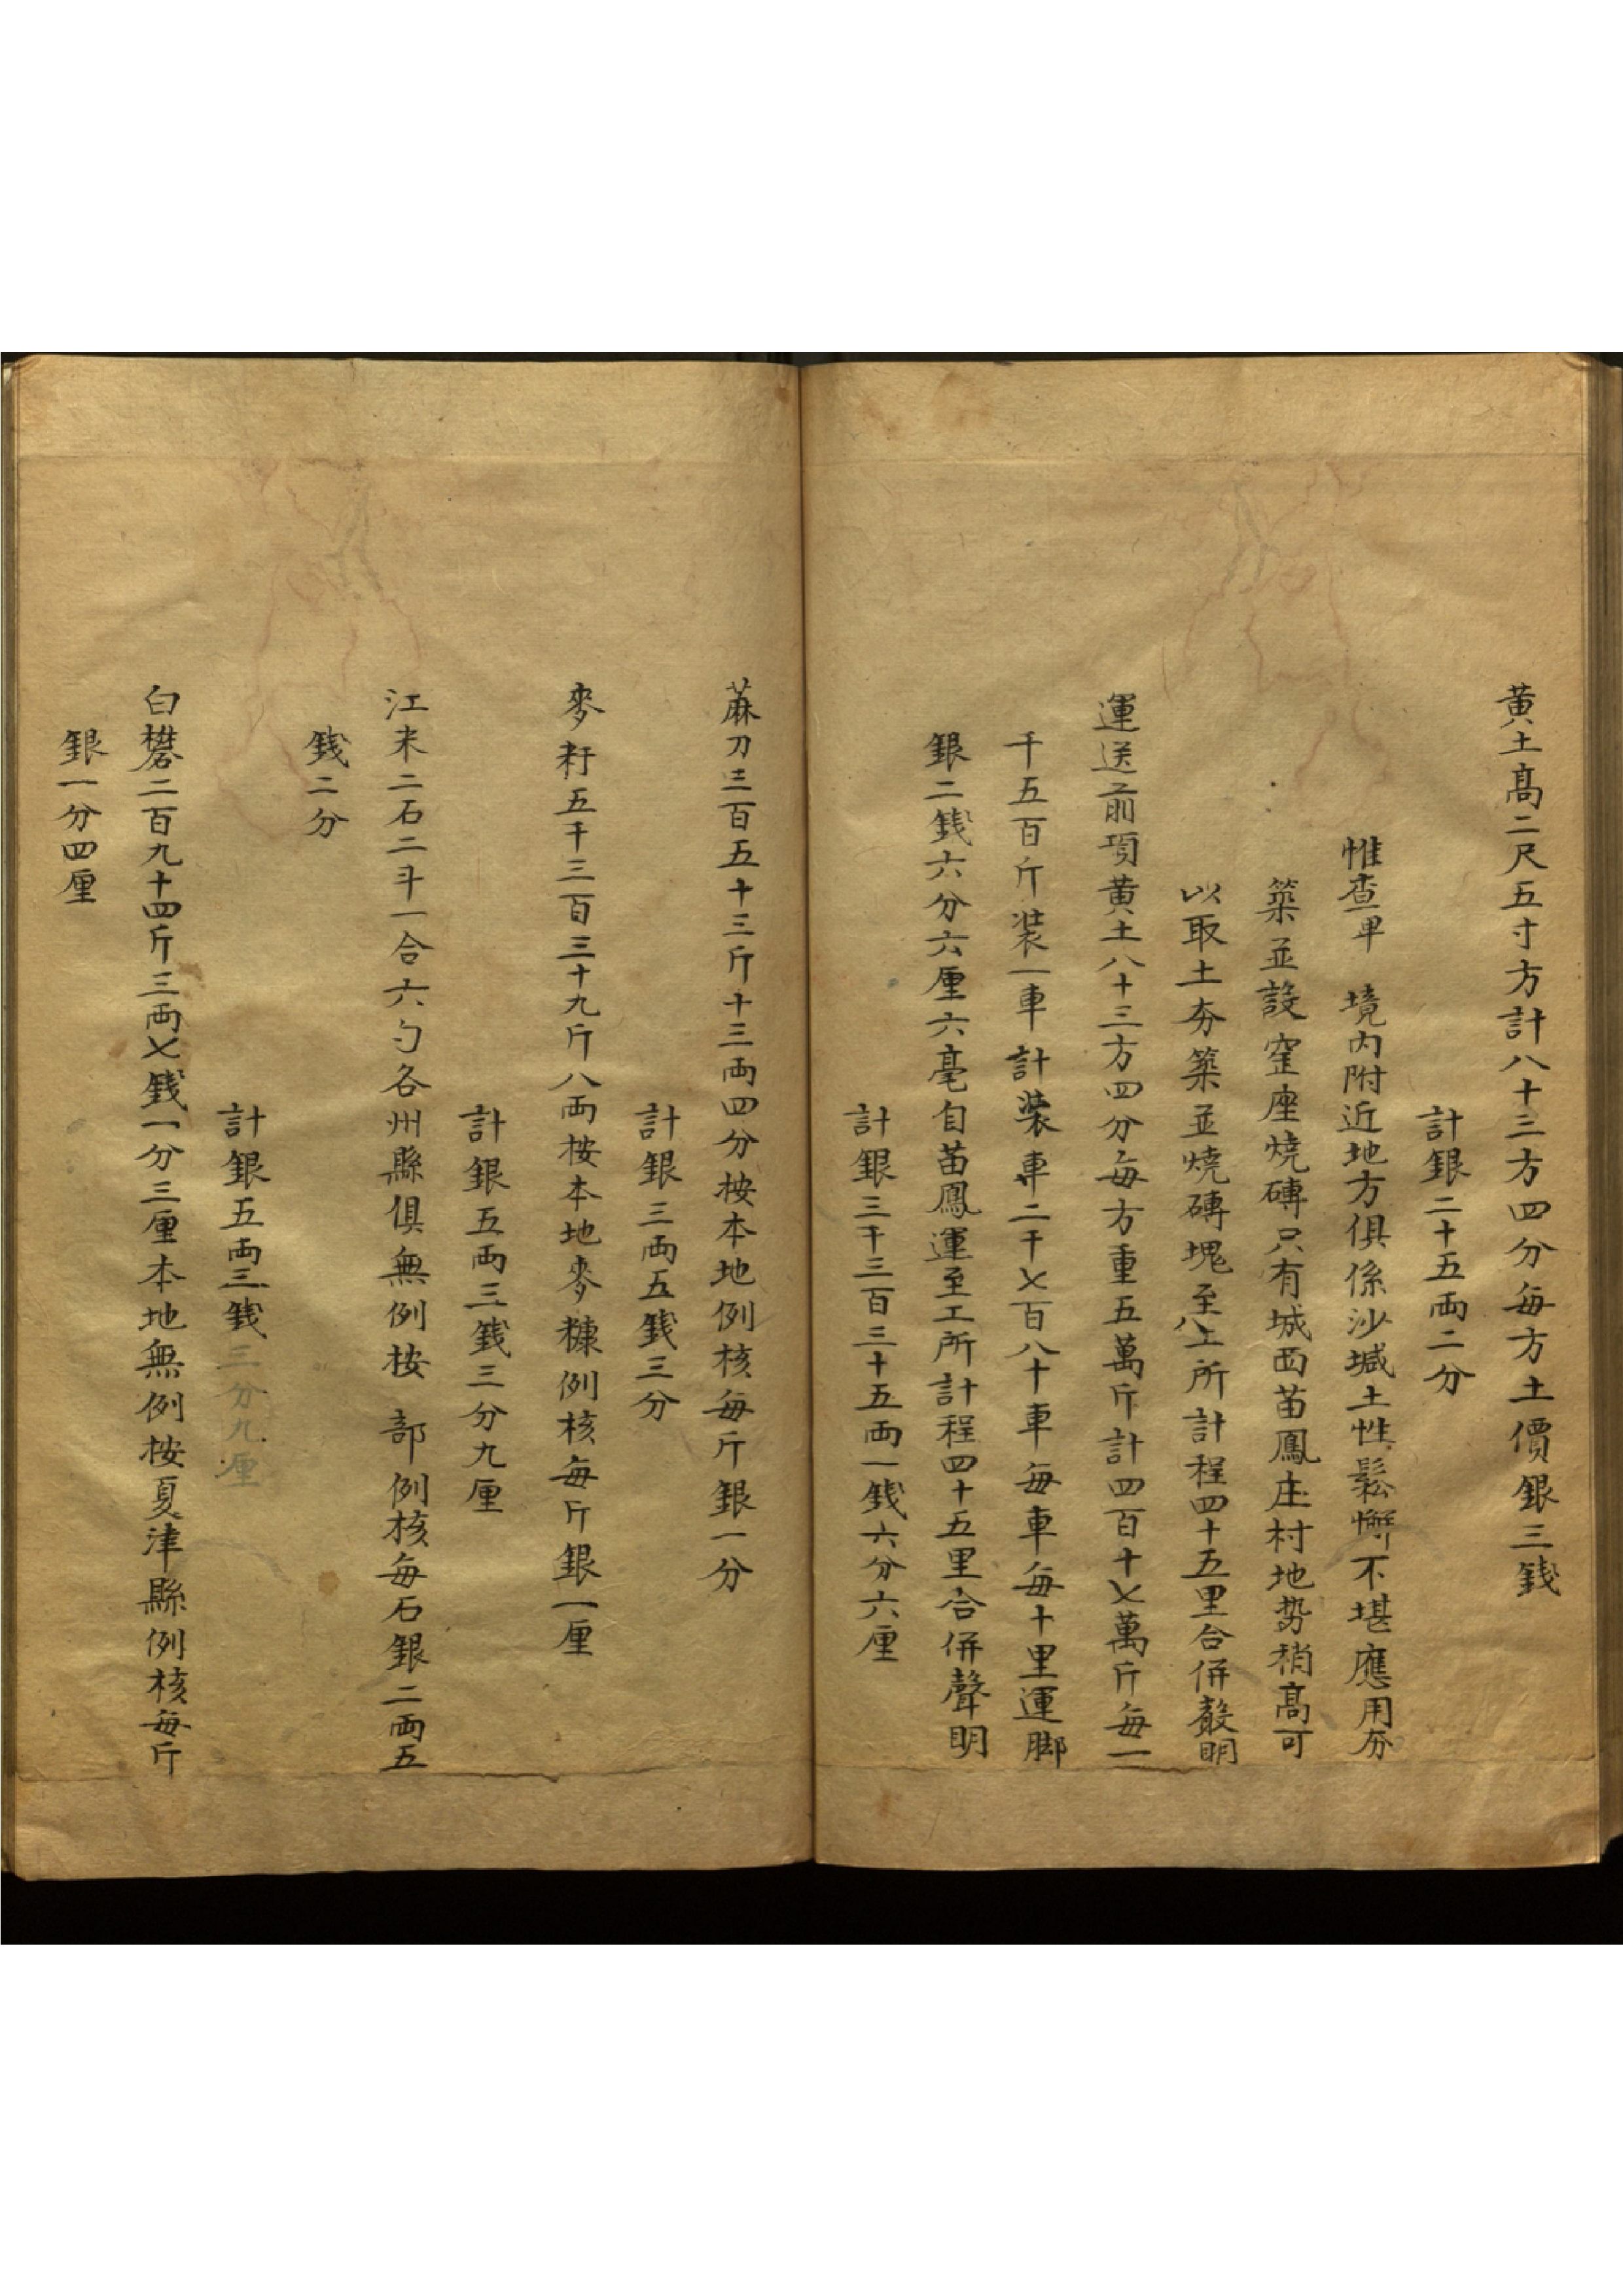 黄土髙二尺五寸方計八十三方四分每方土價銀三錢
計銀二十五両二分
惟查卑 境内附近地方俱係沙堿土性鬆懈不堪應用夯
築並設窑座燒磚只有城西苗鳳庄村地势稍髙可
以取土夯築並燒磚塊至工所計程四十五里合併聲明
運送前項黄土八十三方四分每方重五萬斤計四百十七萬斤每一
千五百斤装一車計装車二千七百八十車每車每十里運脚
銀二錢六分六厘六毫自苗鳳運至工所計程四十五里合併聲明
計銀三千三百三十五両一錢六分六厘
蔴刀三百五十三斤十三両四分按本地例核每斤銀一分
計銀三両五錢三分
麥籽五千三百三十九斤八両按本地麥糠例核每斤銀一厘
計銀五両三錢三分九厘
江米二石二斗一合六勺各州縣俱無例按 部例核每石銀二両五
錢二分
計銀五両三錢三分九厘
白礬二百九十四斤三両七錢一分三厘本地無例按夏津縣例核每斤
銀一分四厘